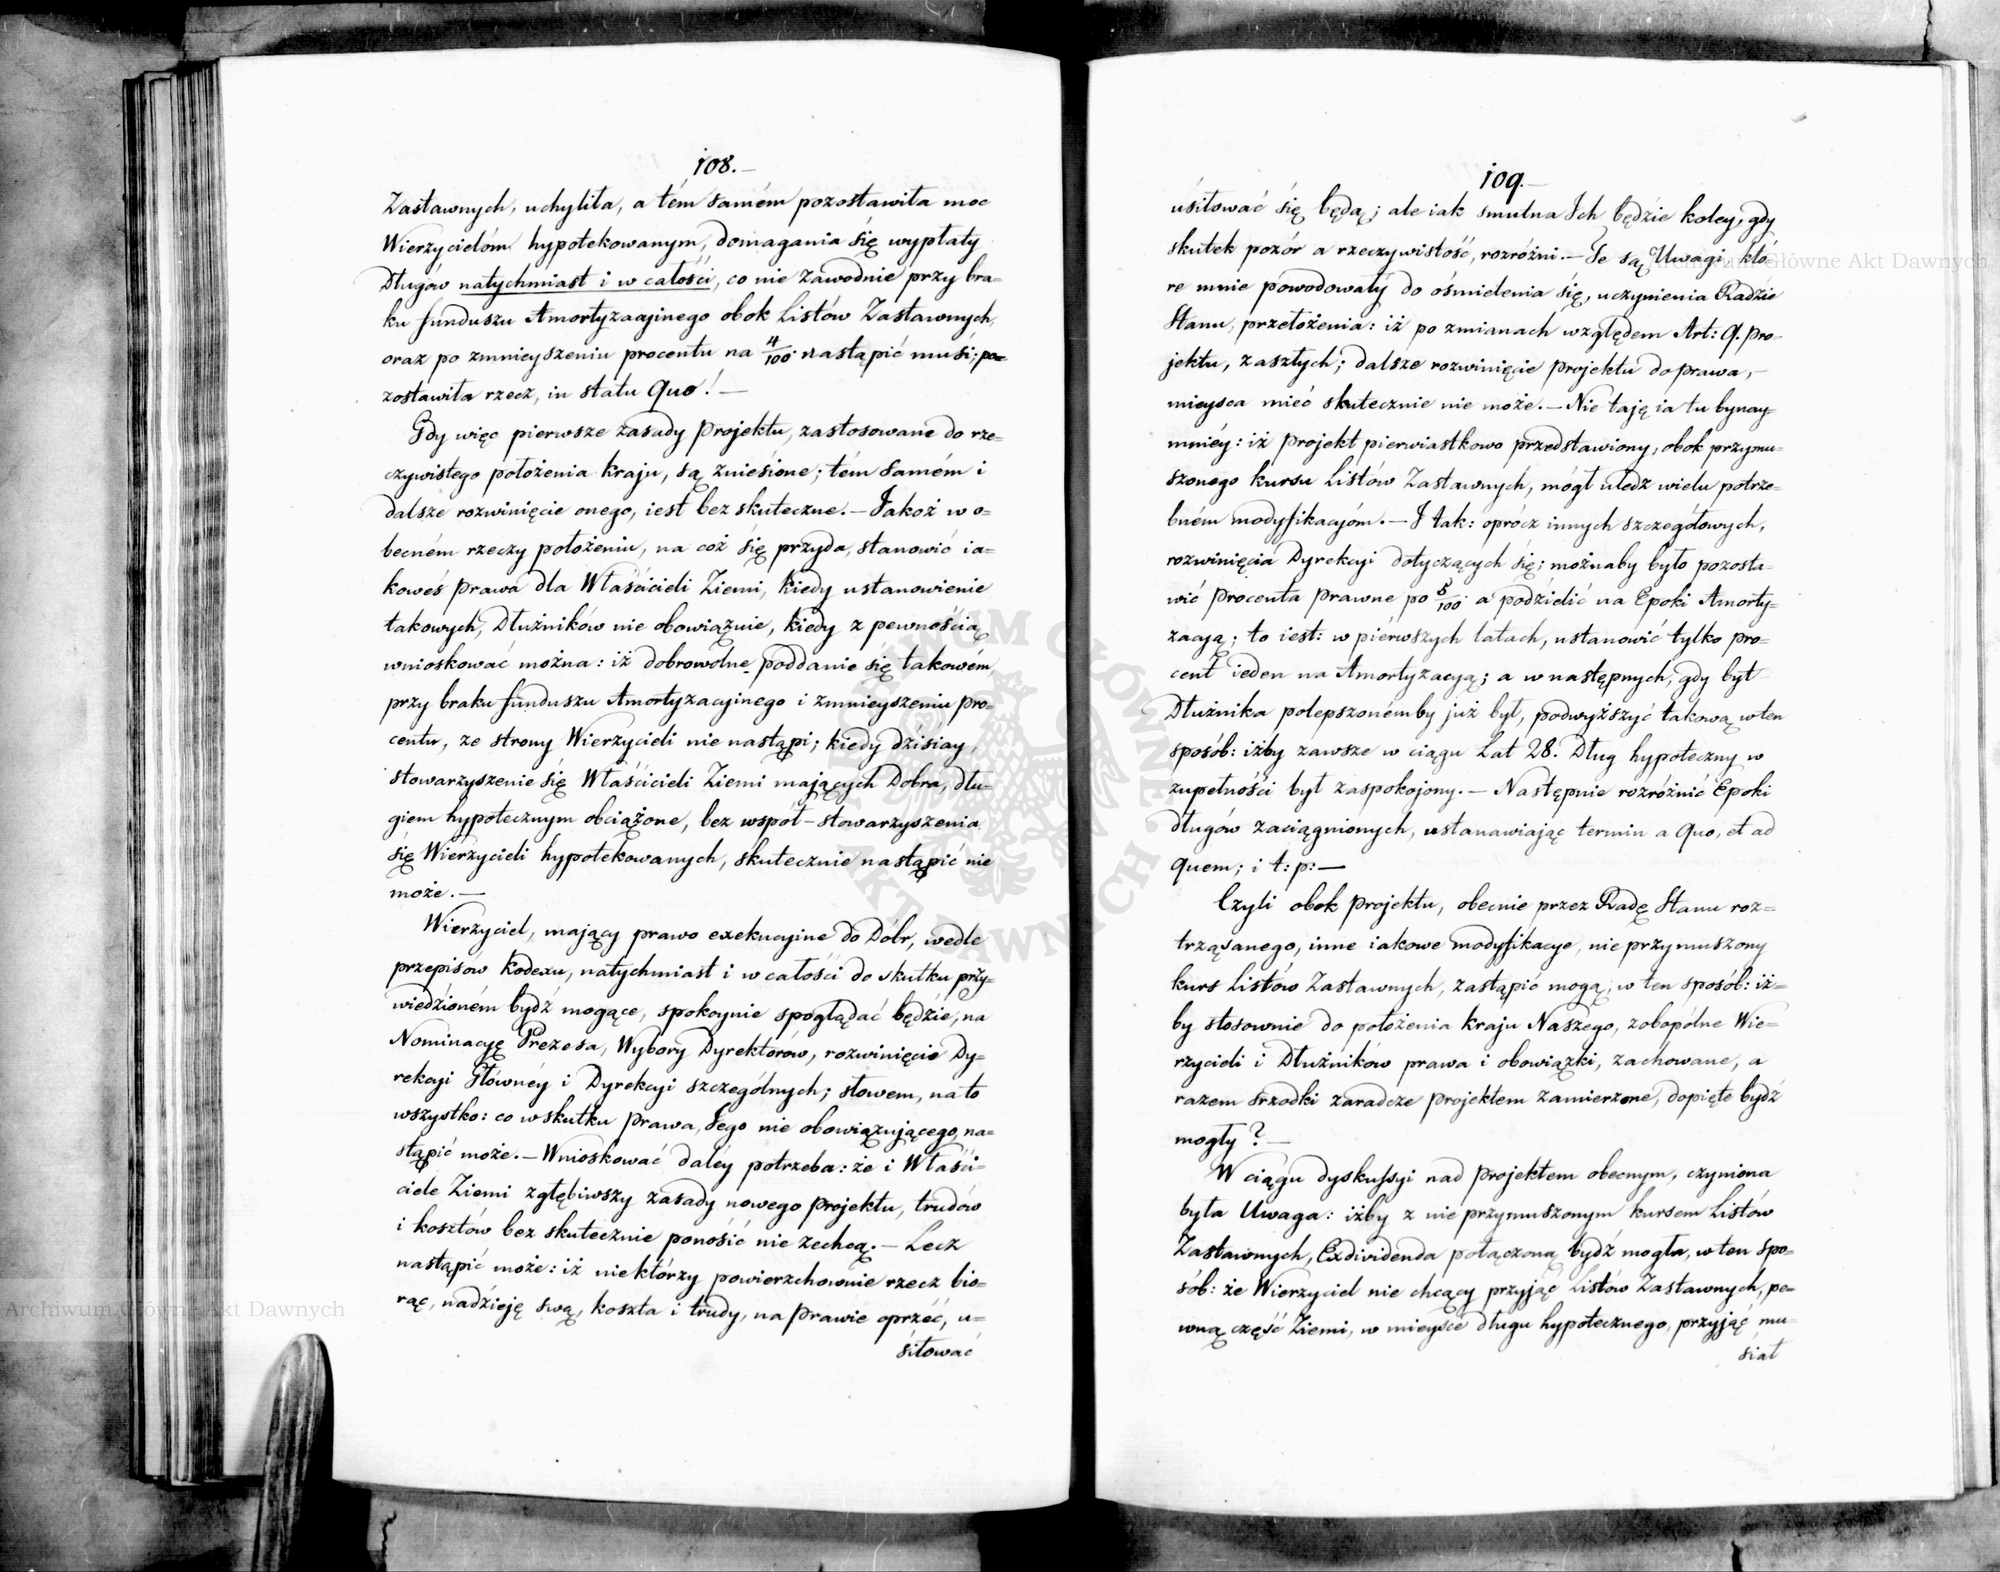 108.—
Zastawnych, uchyliła, a tém samém pozostawiła moc
Wierzycielóm hypotekowanym, domagania się wypłaty
Długów natychmiast i w całości, co nie zawodnie przy bra=
ku funduszu Amortyzacyinego obok Listów Zastawnych,
oraz po zmnieyszeniu procentu na 4/100 nastąpić musi; po=
zostawiła rzecz, in statu quo! —
Gdy więc pierwsze zasady Projektu, zastosowane do rze=
czywistego położenia kraju, są zniesione; tém samém i
dalsze rozwinięcie onego, iest bez skuteczne. — Jakoż w o=
becném rzeczy położeniu, na coż się przyda, stanowić ia=
koweś Prawa dla Właścicieli Ziemi, kiedy ustanowienie
takowych, Dłużników nie obowiązuie, kiedy z pewnością
wnioskować można: iż dobrowolne poddanie się takowém,
przy braku funduszu Amortyzacyinego i zmnieyszeniu pro=
centu, ze strony Wierzycieli nie nastąpi; kiedy dzisiay,
stowarzyszenie się Właścicieli Ziemi mających Dobra, dłu=
giem hypotecznym obciążone, bez współ-stowarzyszenia
się Wierzycieli hypotekowanych, skutecznie nastąpić nie
może. —
Wierzyciel, mający prawo exekucyine do Dóbr, wedle
przepisów Kodexu, natychmiast i w całości do skutku przy=
wiedzioném bydź mogące, spokoynie spoglądać będzie, na
Nominacyę Prezesa, Wybory Dyrektorów, rozwinięcie Dy=
rekcyi Główney i Dyrekcyi szczególnych; słowem, na to
wszystko: co w skutku Prawa, Jego nie obowiązującego, na=
stąpić może. — Wnioskować daléy potrzeba: że i Właści=
ciele Ziemi zgłębiwszy zasady nowego Projektu, trudów
i kosztów bez skutecznie ponosić nie zechcą. — Lecz
nastąpić może: iż niektórzy powierzchownie rzecz bio=
rąc, nadzieję swą, koszta i trudy, na Prawie oprzéć, u=
siłować
109.—
usiłować się będą; ale iak smutna Ich będzie koley, gdy
skutek pozór a rzeczywistość, rozróżni. — Te są Uwagi, któ=
re mnie powodowały do ośmielenia się, uczynienia Radzie
Stanu, przełożenia: iż po zmianach względem Art: 9. Pro=
jektu, zaszłych; dalsze rozwinięcie Projektu do prawa, —
mieysca mieć skutecznie nie może. — Nie taję ia tu bynay=
mniéy: iż Projekt pierwiastkowo przedstawiony, obok przymu=
szonego kursu Listów Zastawnych, mógł uledz wielu potrze=
bném modyfikacyóm. — I tak: oprócz innych szczegółowych,
rozwinięcia Dyrekcyi dotyczących się; możnaby było pozosta=
wić Procenta Prawne po 5/100 a podzielić na Epoki Amorty=
zacyą; to iest: w piérwszych latach, ustanowić tylko pro=
cent ieden na Amortyzacyą; a w następnych, gdy byt
Dłużnika polepszonémby już był, podwyższyć takową w ten
sposób: iżby zawsze w ciągu Lat 28. Dług hypoteczny w
zupełności był zaspokojony. — Następnie rozróżnić Epoki
długów zaciągnionych, ustanawiając termin a quo, et ad
quem; i t: p: —
Czyli obok Projektu, obecnie przez Radę Stanu roz=
trząsanego, inne iakowe modyfikacye, nie przymuszony
kurs Listów Zastawnych, zastąpić mogą; w ten sposób: iż=
by stosownie do położenia kraju Naszego, zobopólne Wie=
rzycieli i Dłużników prawa i obowiązki, zachowane, a
razem srzodki zaradcze projektem zamierzone, dopięte bydź
mogły? —
W ciągu dyskussyi nad projektem obecnym, czyniona
była Uwaga: iżby z nie przymuszonym kursem Listów
Zastawnych, Exdividenda połączoną bydź mogła, w ten spo=
sób: że Wierzyciel nie chcący przyjąć Listów Zastawnych, pe=
wną część Ziemi, w mieysce długu hypotecznego, przyjąć mu=
siał
Archiwum Główne Akt Dawnych
Archiwum Główne Akt Dawnych
ARCHIWUM GŁÓWNE AKT DAWNYCH